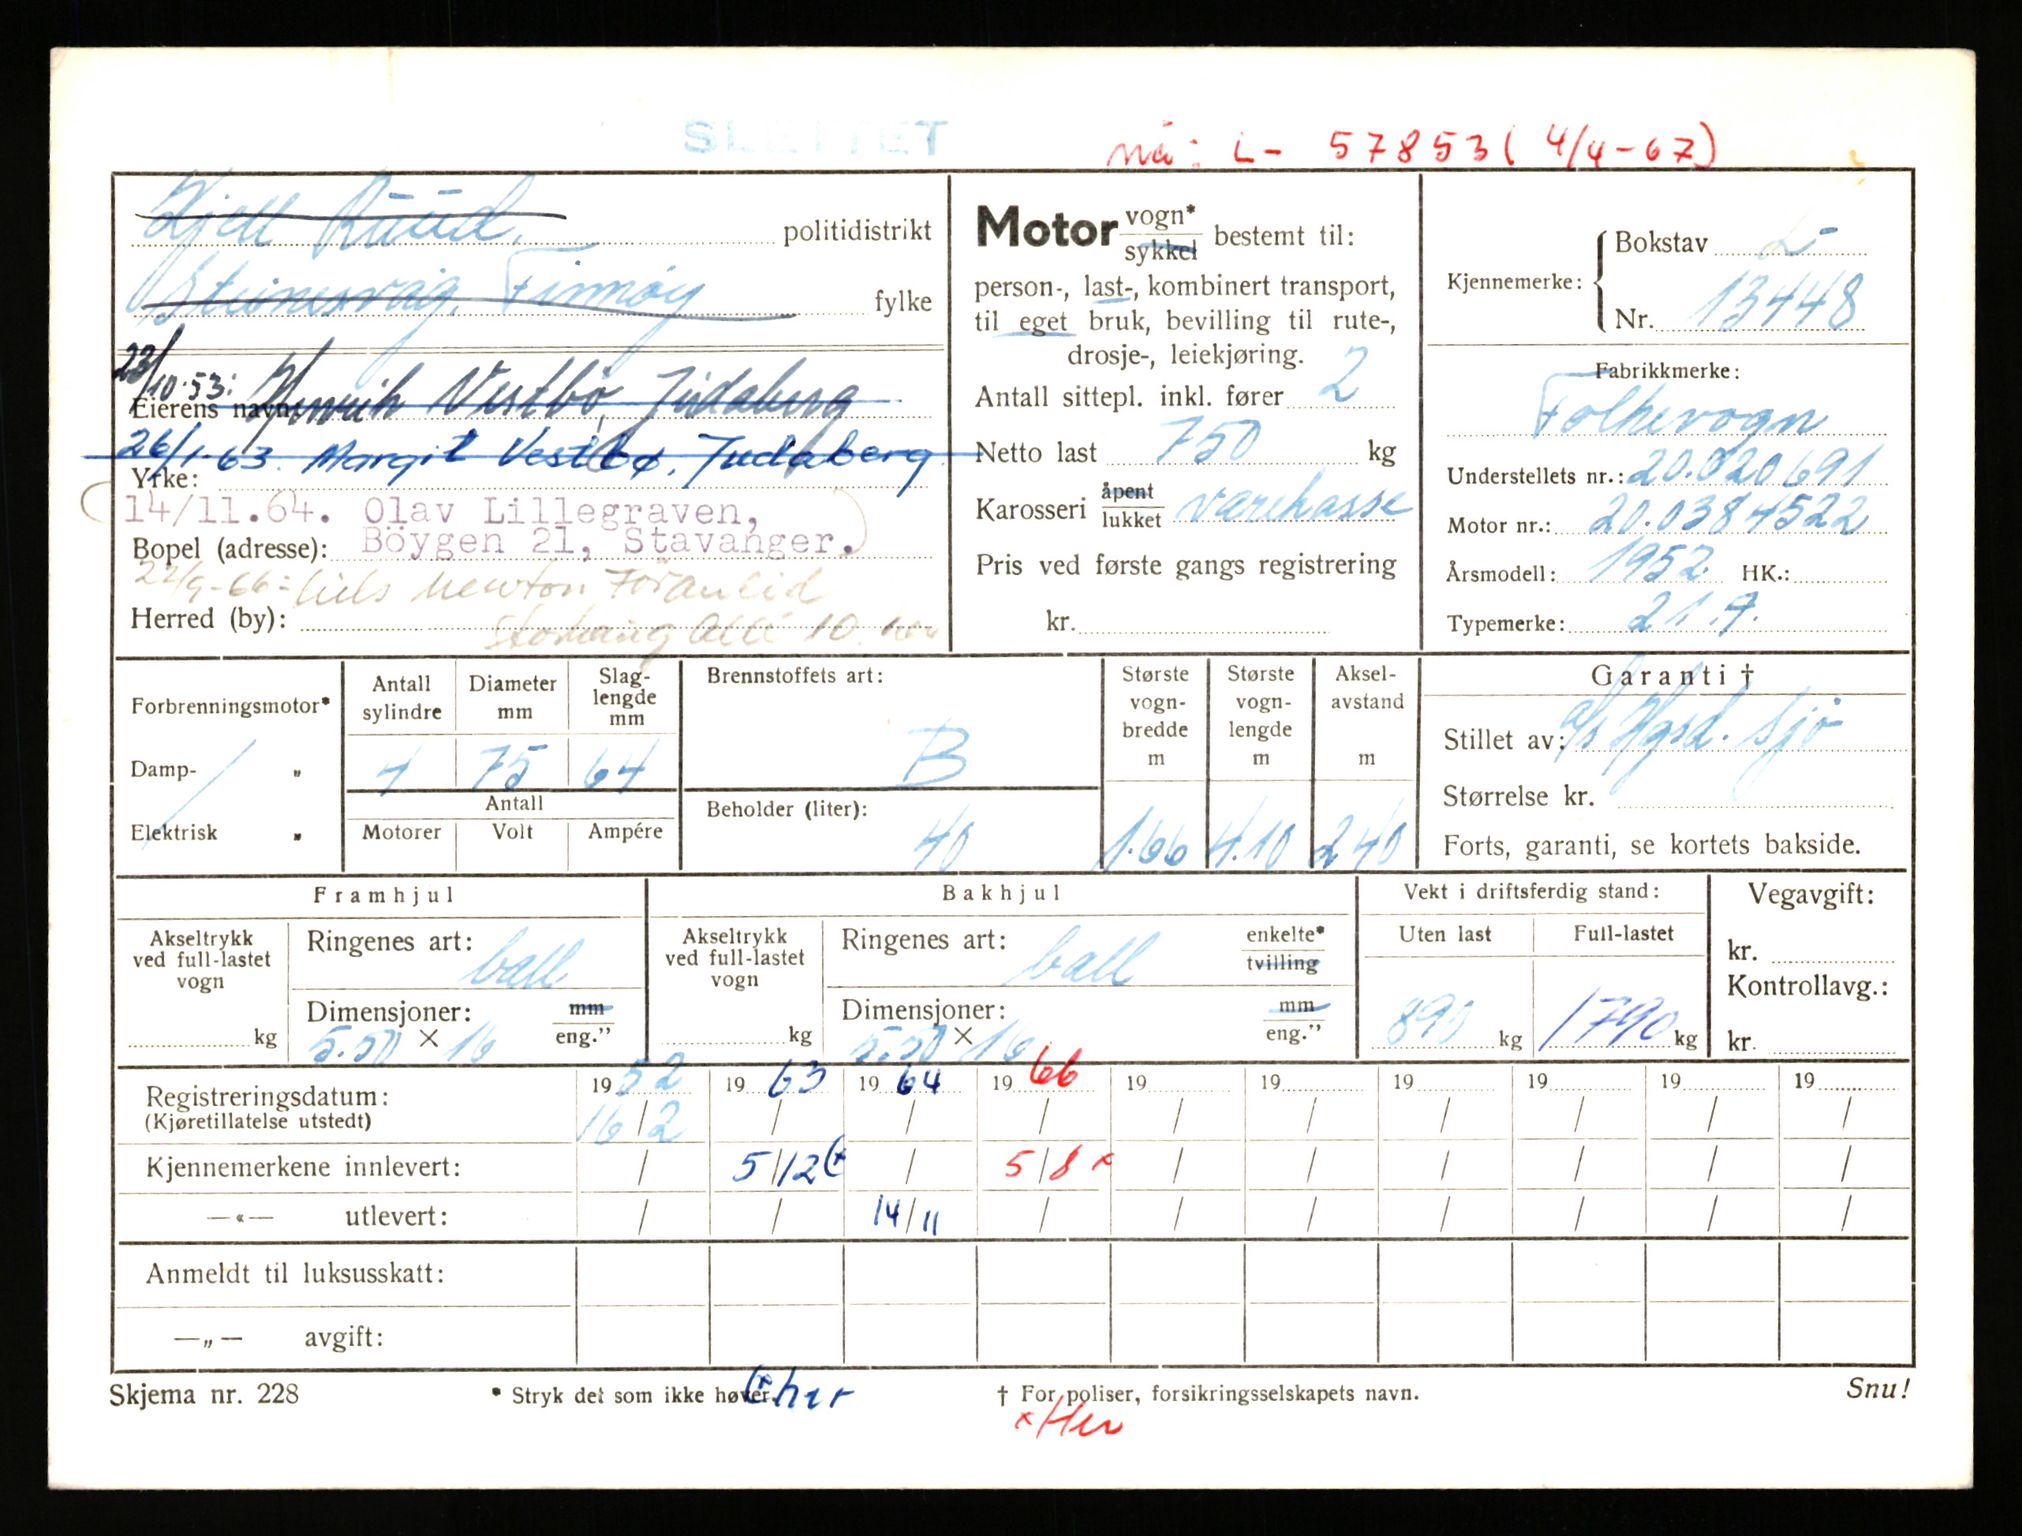 SLETTET
nå: L- 57853 (4/4-67)
Kjell Ruud. politidistrikt
Steinesvåg, Finnøy fylke
23/10.53: Henrik Vestbø Judaberg
Eierens navn:
26/1-63. Margit Vestbø, Judaberg
Yrke:
14/11.64. Olav Lillegraven,
Bopel (adresse): Böygen 21, Stavanger.
22/9-66: Nils Newton
Herred (by): Alle 10.
Motor vogn* sykkel bestemt til:
person-, last-, kombinert transport,
til eget bruk, bevilling til rute-,
drosje-, leiekjøring.
Antall sittepl. inkl. fører 2
Netto last 750 kg
Karosseri åpent lukket varekasse
Pris ved første gangs registrering
kr.
Kjennemerke: Bokstav L-
Nr. 13448
Fabrikkmerke:
Folkevogn
Understellets nr.: 20.020691
Motor nr.: 20.0384522
Årsmodell: 1952. HK.:
Typemerke: 21.A.
Forbrenningsmotor*
Damp- „
Elektrisk „
Antall sylindre 4
Diameter mm 75
Slaglengde mm 64
Antall
Motorer Volt Ampére
Brennstoffets art:
B
Beholder (liter):
40
Største vogn-bredde m 1.66
Største vogn-lengde m 4.10
Aksel-avstand m 240
Garanti †
Stillet av: a/s Hgsd. Sjø
Størrelse kr.
Forts, garanti, se kortets bakside.
Framhjul
Akseltrykk ved full-lastet vogn kg
Ringenes art: ball
Dimensjoner: mm
5.50 × 16 eng.”
Bakhjul
Akseltrykk ved full-lastet vogn kg
Ringenes art: ball enkelte* tvilling
Dimensjoner: mm
5.50 × 16 eng.”
Vekt i driftsferdig stand:
Uten last Full-lastet
890 kg 1790 kg
Vegavgift:
kr.
Kontrollavg.:
kr.
Registreringsdatum: 1952 1963 1964 1966 19 19 19 19 19 19
(Kjøretillatelse utstedt) 16/2 / / / / / / / / /
Kjennemerkene innlevert: / 5/12 (x / 5/8 x / / / / / /
—«— utlevert: / / 14/11 / / / / / / /
Anmeldt til luksusskatt:
—„— avgift:
Skjema nr. 228 * Stryk det som ikke høver. (x her † For poliser, forsikringsselskapets navn. Snu!
x Her